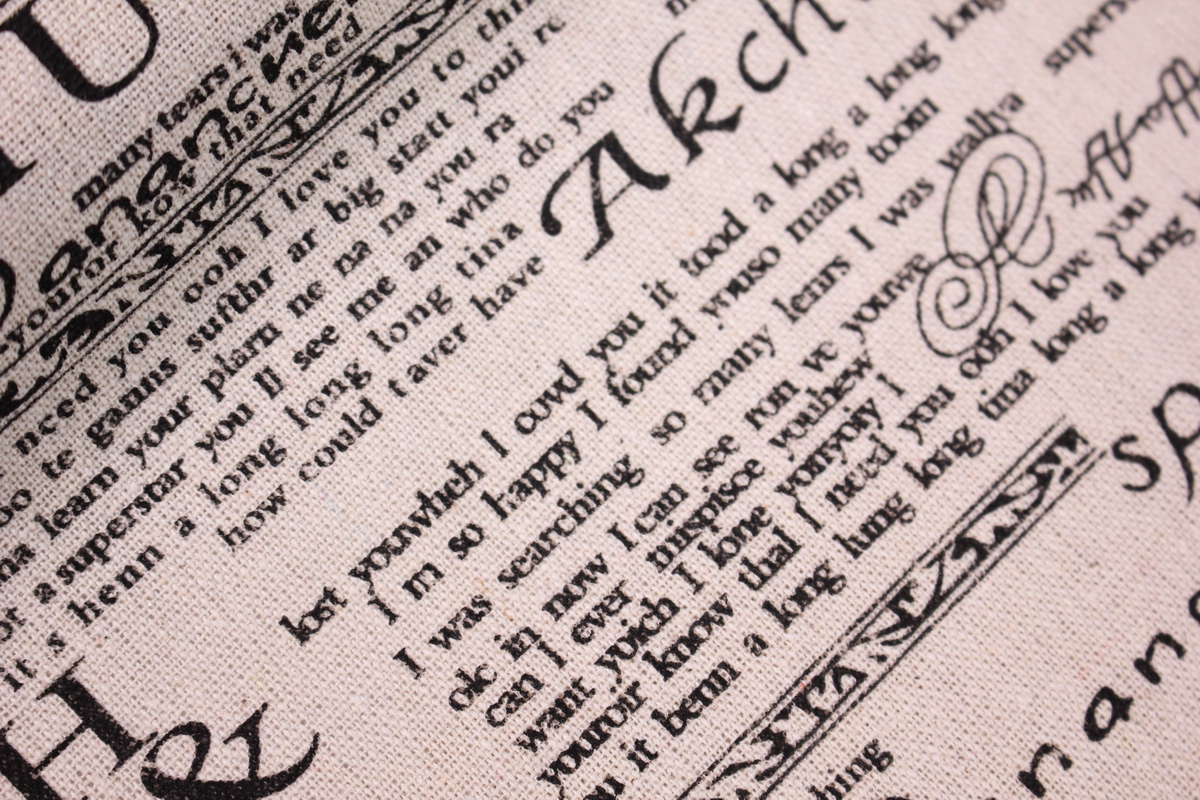 U
many tears i was
that need
need you ooh I love you to thin
te ganns sufthr ar big statt youi re
na learn your plarn ne na na you ra
or a superstar you ll see me an who do you
it s henn a long long long tina
how could t aver have
Akch
H
&
lost youwhch I cowd you it tood a long a long long
I m so happy I found youso many tooin
I was searching so many lenrs I was wallya
oic in now I can see ron ve youwe
can I ever mispisce youhew
want yoich I lone yorryoiy I
youroir know thal I need you ooh I love you
u it benn a long lung long tina long a long
supers
sp
nan
hing